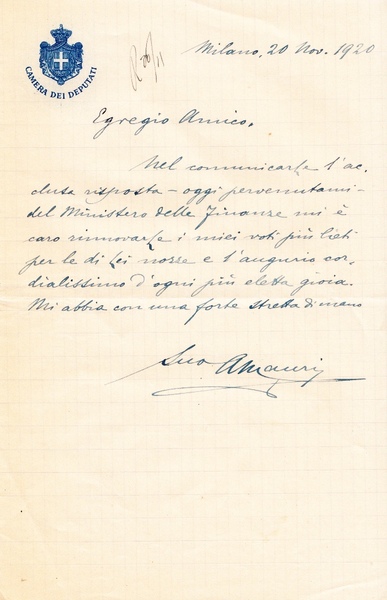 Milano, 20 Nov. 1920
R 20/11
CAMERA DEI DEPUTATI
Egregio Amico,
Nel comunicarLe l'ac-
clusa risposta - oggi pervenutami -
del Ministero delle Finanze mi è
caro rinnovarLe i miei voti più lieti
per le di Lei nozze e l'augurio cor-
dialissimo d'ogni più eletta gioia.
Mi abbia con una forte stretta di mano
Suo AMauri